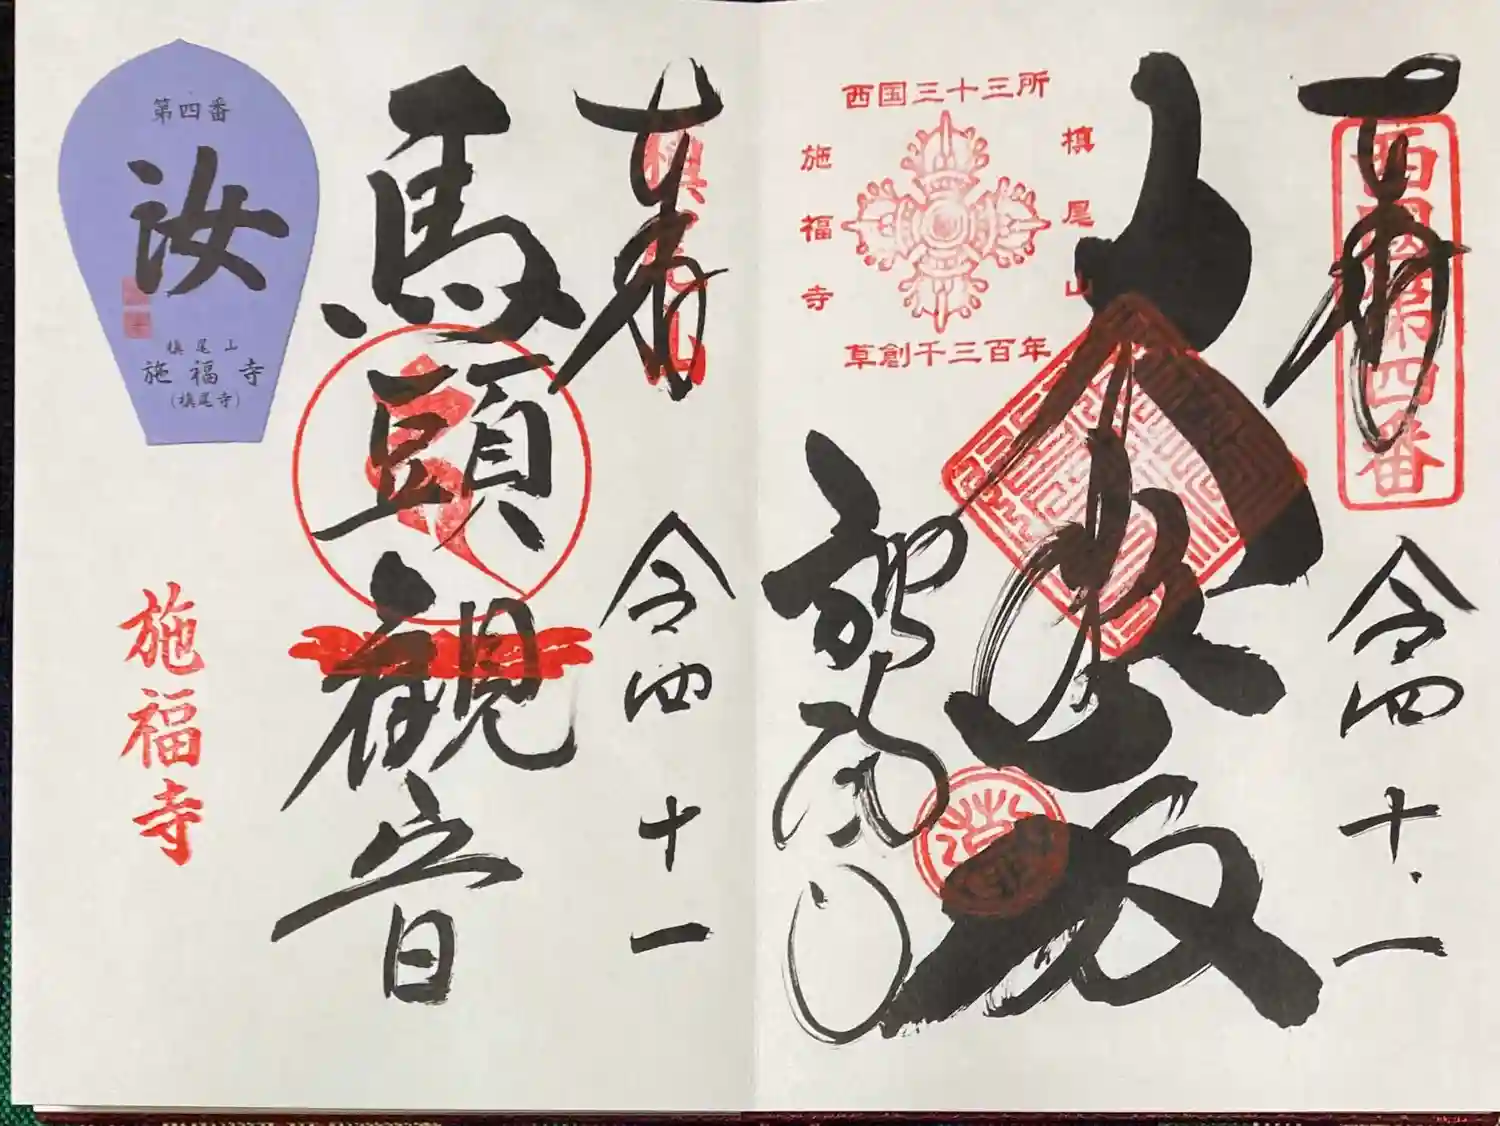 奉拝
西国第四番
令四 十.一
西国三十三所
槇尾山
施福寺
草創千三百年
大悲殿
施福寺
奉拝
槇尾山
令四 十 一
馬頭観音
第四番
汝
槇尾山
施福寺
(槇尾寺)
施福寺